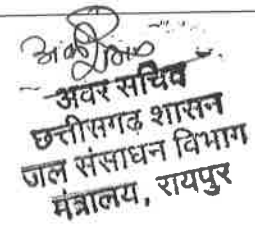 अवर सचिव
छत्तीसगढ़ शासन
जल संसाधन विभाग
मंत्रालय, रायपुर